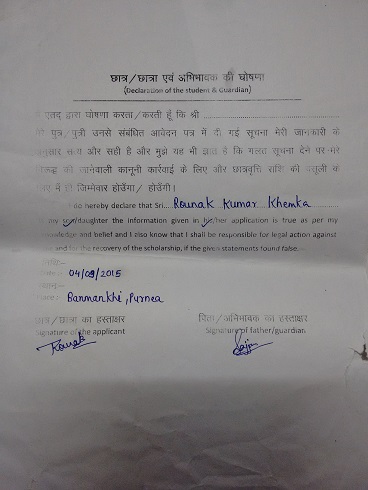 छात्र/छात्रा एवं अभिभावक की घोषणा
(Declaration of the student & Guardian)
एतद द्वारा घोषणा करता/करती हूँ कि श्री
पुत्र/पुत्री उनसे संबंधित आवेदन पत्र में दी गई सूचना मेरी जानकारी के
अनुसार सत्य और सही है और मुझे यह भी ज्ञात है कि गलत सूचना देने पर मेरे
की जानेवाली कानूनी कार्रवाई के लिए और छात्रवृत्ति राशि की वसूली के
में मैं जिम्मेवार होउँगा/होउँगी।
do hereby declare that Sri... Rounak Kumar Khemka
my son/daughter the information given in his/her application is true as per my
knowledge and belief and I also know that I shall be responsible for legal action against
and for the recovery of the scholarship, if the given statements found false.
04/09/2015
Banmankhi, Purnea
छात्र/छात्रा का हस्ताक्षर पिता/अभिभावक का हस्ताक्षर
Signature of the applicant Signature of father/guardian
Rounak